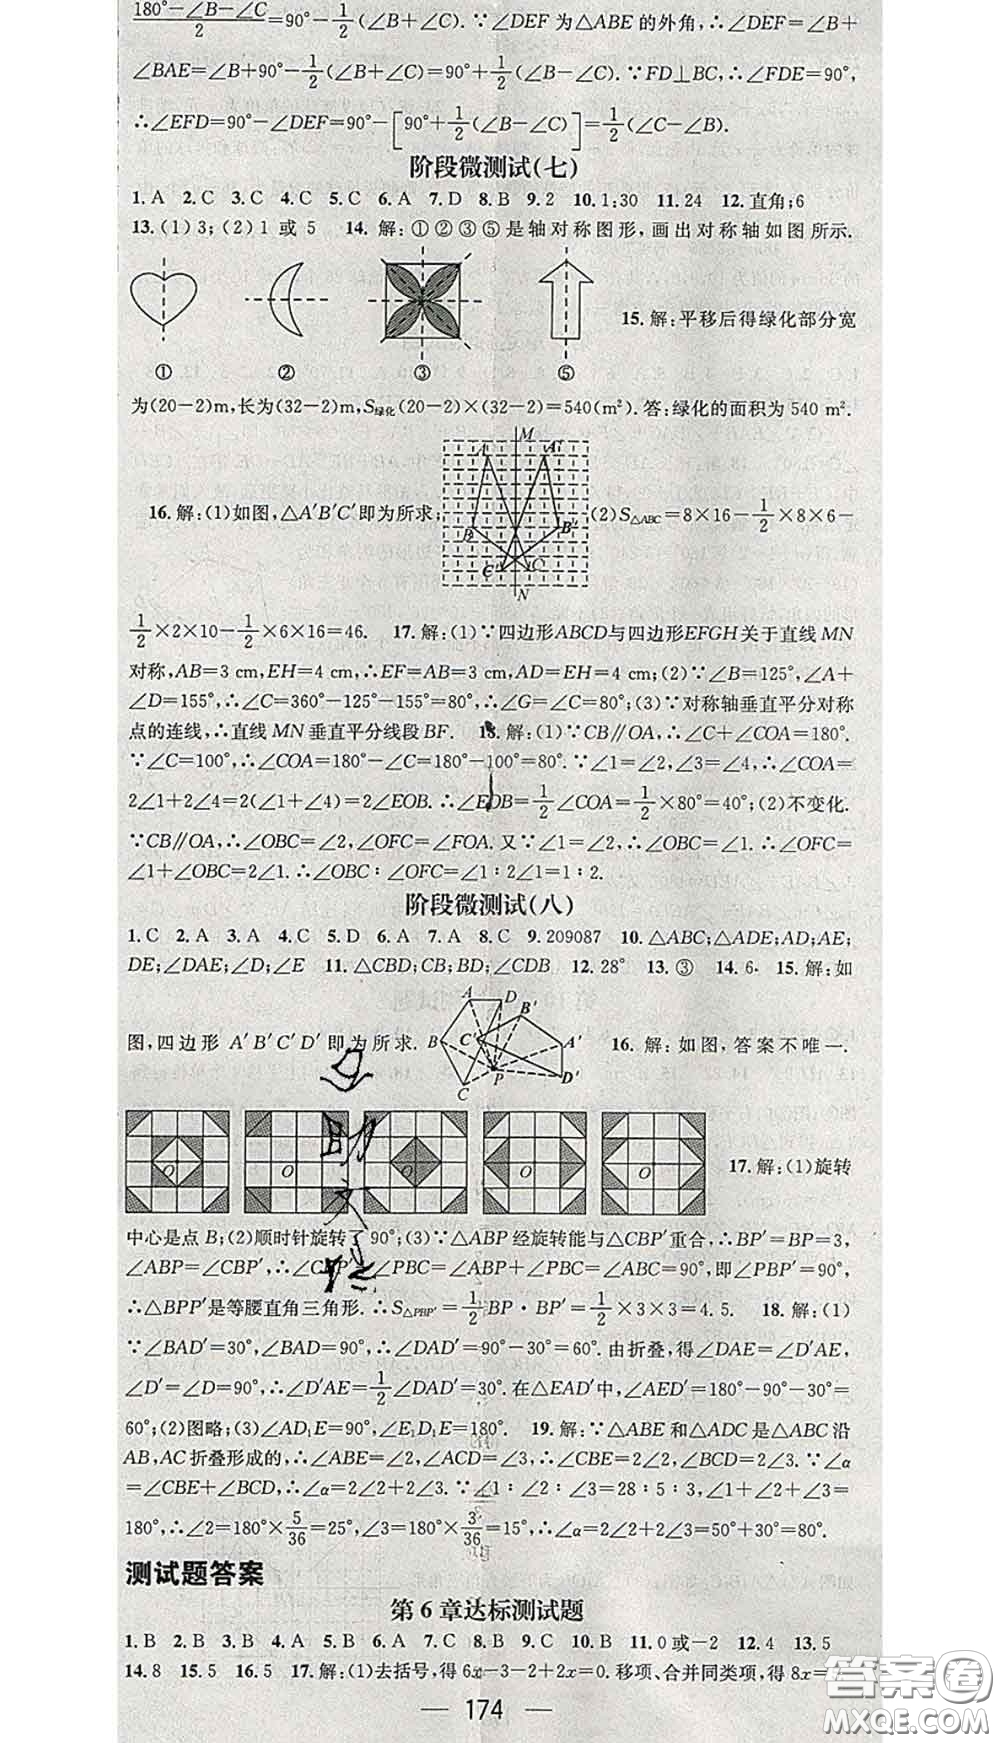 180°－∠B－∠C/2＝90°－1/2(∠B＋∠C).∵∠DEF 为△ABE 的外角,∴∠DEF＝∠B＋
∠BAE＝∠B＋90°－1/2(∠B＋∠C)＝90°＋1/2(∠B－∠C).∵FD⊥BC,∴∠FDE＝90°,
∴∠EFD＝90°－∠DEF＝90°－[90°＋1/2(∠B－∠C)]＝1/2(∠C－∠B).
阶段微测试(七)
1.A 2.C 3.C 4.C 5.C 6.A 7.D 8.B 9.2 10.1:30 11.24 12.直角;6
13.(1)3;(2)1 或 5 14.解:①②③⑤是轴对称图形,画出对称轴如图所示.
① ② ③ ⑤
15.解:平移后得绿化部分宽
为(20－2)m,长为(32－2)m,S绿化(20－2)×(32－2)＝540(m²).答:绿化的面积为 540 m².
M A A′ B B′ C′ C N
16.解:(1)如图,△A′B′C′即为所求; (2)S△ABC＝8×16－1/2×8×6－
1/2×2×10－1/2×6×16＝46. 17.解:(1)∵四边形ABCD与四边形EFGH关于直线MN
对称,AB＝3 cm,EH＝4 cm,∴EF＝AB＝3 cm,AD＝EH＝4 cm;(2)∵∠B＝125°,∠A＋
∠D＝155°,∴∠C＝360°－125°－155°＝80°,∴∠G＝∠C＝80°;(3)∵对称轴垂直平分对称
点的连线,∴直线 MN 垂直平分线段 BF. 18.解:(1)∵CB∥OA,∴∠C＋∠COA＝180°.
∵∠C＝100°,∴∠COA＝180°－∠C＝180°－100°＝80°.∵∠1＝∠2,∠3＝∠4,∴∠COA＝
2∠1＋2∠4＝2(∠1＋∠4)＝2∠EOB.∴∠EOB＝1/2∠COA＝1/2×80°＝40°;(2)不变化.
∵CB∥OA,∴∠OBC＝∠2,∠OFC＝∠FOA.又∵∠1＝∠2,∴∠OBC＝∠1.∴∠OFC＝
∠1＋∠OBC＝2∠1.∴∠OBC∶∠OFC＝∠1∶2∠1＝1∶2.
阶段微测试(八)
1.C 2.A 3.A 4.C 5.D 6.A 7.A 8.C 9.209087 10.△ABC;△ADE;AD;AE;
DE;∠DAE;∠D;∠E 11.△CBD;CB;BD;∠CDB 12.28° 13.③ 14.6 15.解:如
A D B′ B C′ A′ P D′ C
图,四边形 A′B′C′D′即为所求. 16.解:如图,答案不唯一.
O O O O O
17.解:(1)旋转
中心是点 B;(2)顺时针旋转了 90°;(3)∵△ABP 经旋转能与△CBP′重合,∴BP′＝BP＝3,
∠ABP＝∠CBP′,∴∠CBP′＋∠PBC＝∠ABP＋∠PBC＝∠ABC＝90°,即∠PBP′＝90°,
∴△BPP′是等腰直角三角形.∴S△PBP′＝1/2BP·BP′＝1/2×3×3＝4.5. 18.解:(1)
∵∠BAD′＝30°,∠BAD＝90°,∴∠DAD′＝90°－30°＝60°.由折叠,得∠DAE＝∠D′AE,
∠D′＝∠D＝90°,∴∠D′AE＝1/2∠DAD′＝30°.在△EAD′中,∠AED′＝180°－90°－30°＝
60°;(2)图略;(3)∠AD₁E＝90°,∠E₁D₁E＝180°. 19.解:∵△ABE 和△ADC 是△ABC 沿
AB,AC 折叠形成的,∴∠ABE＝∠2,∠ACD＝∠3,∴∠CBE＝2∠2,∠BCD＝2∠3.∵∠α
＝∠CBE＋∠BCD,∴∠α＝2∠2＋2∠3.∵∠1∶∠2∶∠3＝28∶5∶3,∠1＋∠2＋∠3＝
180°,∴∠2＝180°×5/36＝25°,∠3＝180°×3/36＝15°,∴∠α＝2∠2＋2∠3＝50°＋30°＝80°.
测试题答案
第 6 章达标测试题
1.B 2.B 3.B 4.A 5.B 6.A 7.C 8.B 9.C 10.B 11.0或－2 12.4 13.5
14.8 15.5 16.5 17.解:(1)去括号,得 6x－3－2＋2x＝0.移项、合并同类项,得 8x＝
— 174 —
答案圈
MXQE.COM